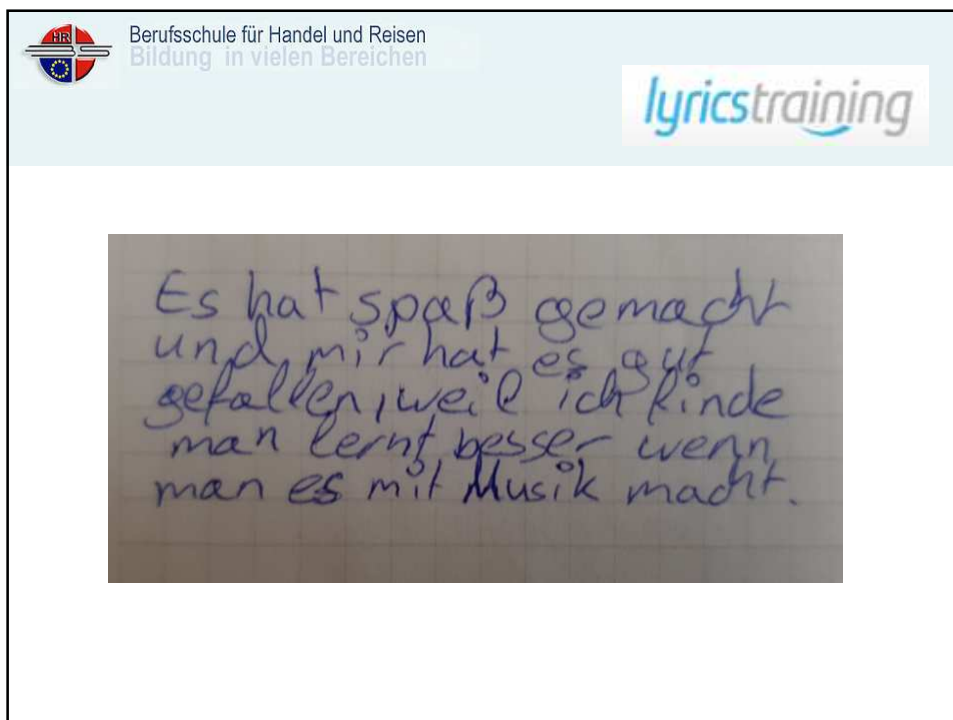 HR
BS
Berufsschule für Handel und Reisen
Bildung in vielen Bereichen
lyricstraining
Es hat spaß gemacht
und mir hat es gut
gefallen, weil ich finde
man lernt besser wenn
man es mit Musik macht.